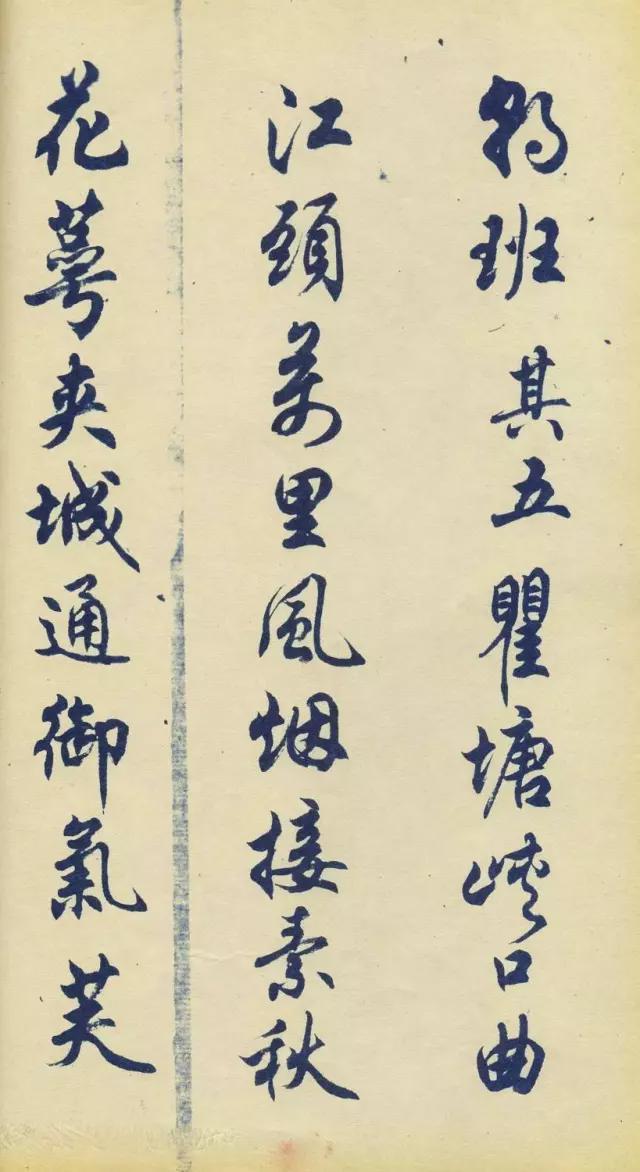 朝班其五瞿塘峽口曲
江頭萬里風烟接素秋
花萼夾城通御氣芙